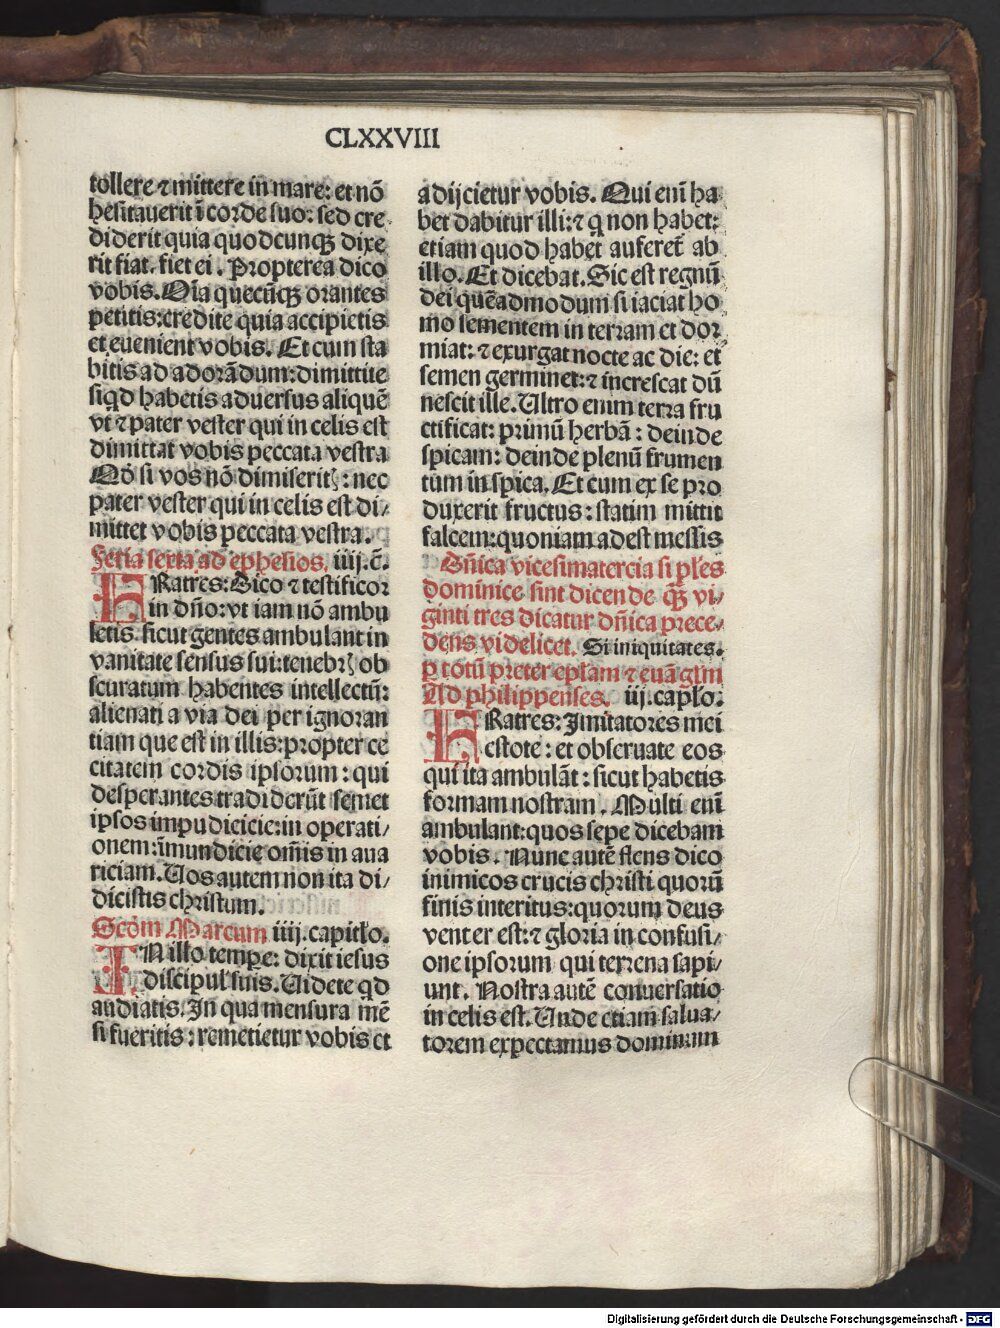 CLXXVIII
tollere ⁊ mittere in mare: et nō
hesitauerit ī corde suo: sed cre
diderit quia quodcunqꝫ dixe
rit fiat. fiet ei. Propterea dico
vobis. Oīa quecūqꝫ orantes
petitis: credite quia accipietis
et euenient vobis. Et cum sta
bitis ad adorādum: dimittite
siqd habetis aduersus aliquē
vt ⁊ pater vester qui in celis est
dimittat vobis peccata vestra
Qd si vos nō dimiseritꝭ: nec
pater vester qui in celis est di/
mittet vobis peccata vestra.
Feria sexta ad ephesios. iiij. c̄.
FRatres: Dico ⁊ testificor
in dn̄o: vt iam nō ambu
letis sicut gentes ambulant in
vanitate sensus sui: tenebrꝭ ob
scuratum habentes intellectū:
alienati a via dei per ignoran
tiam que est in illis: propter ce
citatem cordis ipsorum: qui
desperantes tradiderūt semet
ipsos impudicicie: in operati/
onem: īmundicie om̄is in aua
riciam. Uos autem non ita di/
dicistis christum.
Scd̄m Marcum iiij. capitlo.
IN illo tempe: dixit iesus
discipul' suis. Uidete qd
audiatis. In qua mensura mē
si fueritis: remetietur vobis et
adijcietur vobis. Qui enī ha
bet dabitur illi: ⁊ q non habet:
etiam quod habet auferet̄ ab
illo. Et dicebat. Sic est regnū
dei quēadmodum si iaciat ho
mo sementem in terram et dor
miat: ⁊ exurgat nocte ac die: et
semen germinet: ⁊ increscat dū
nescit ille. Ultro enim terra fru
ctificat: primū herbā: deinde
spicam: deinde plenū frumen
tum in spica. Et cum ex se pro
duxerit fructus: statim mittit
falcem: quoniam adest messis
Dn̄ica vicesimatercia si pl'es
dominice sint dicende qꝫ vi/
ginti tres dicatur dn̄ica prece/
dens videlicet. Si iniquitates.
ꝑ totū preter epl̄am ⁊ euāgliū
Ad philippenses. iij. capl̄o.
FRatres: Imitatores mei
estote: et obseruate eos
qui ita ambulāt: sicut habetis
formam nostram. Multi enī
ambulant: quos sepe dicebam
vobis. Nunc autē flens dico
inimicos crucis christi quorū
finis interitus: quorum deus
venter est: ⁊ gloria in confusi/
one ipsorum qui terrena sapi/
unt. Nostra autē conuersatio
in celis est. Unde etiam salua/
torem expectamus dominum
Digitalisierung gefördert durch die Deutsche Forschungsgemeinschaft - DFG